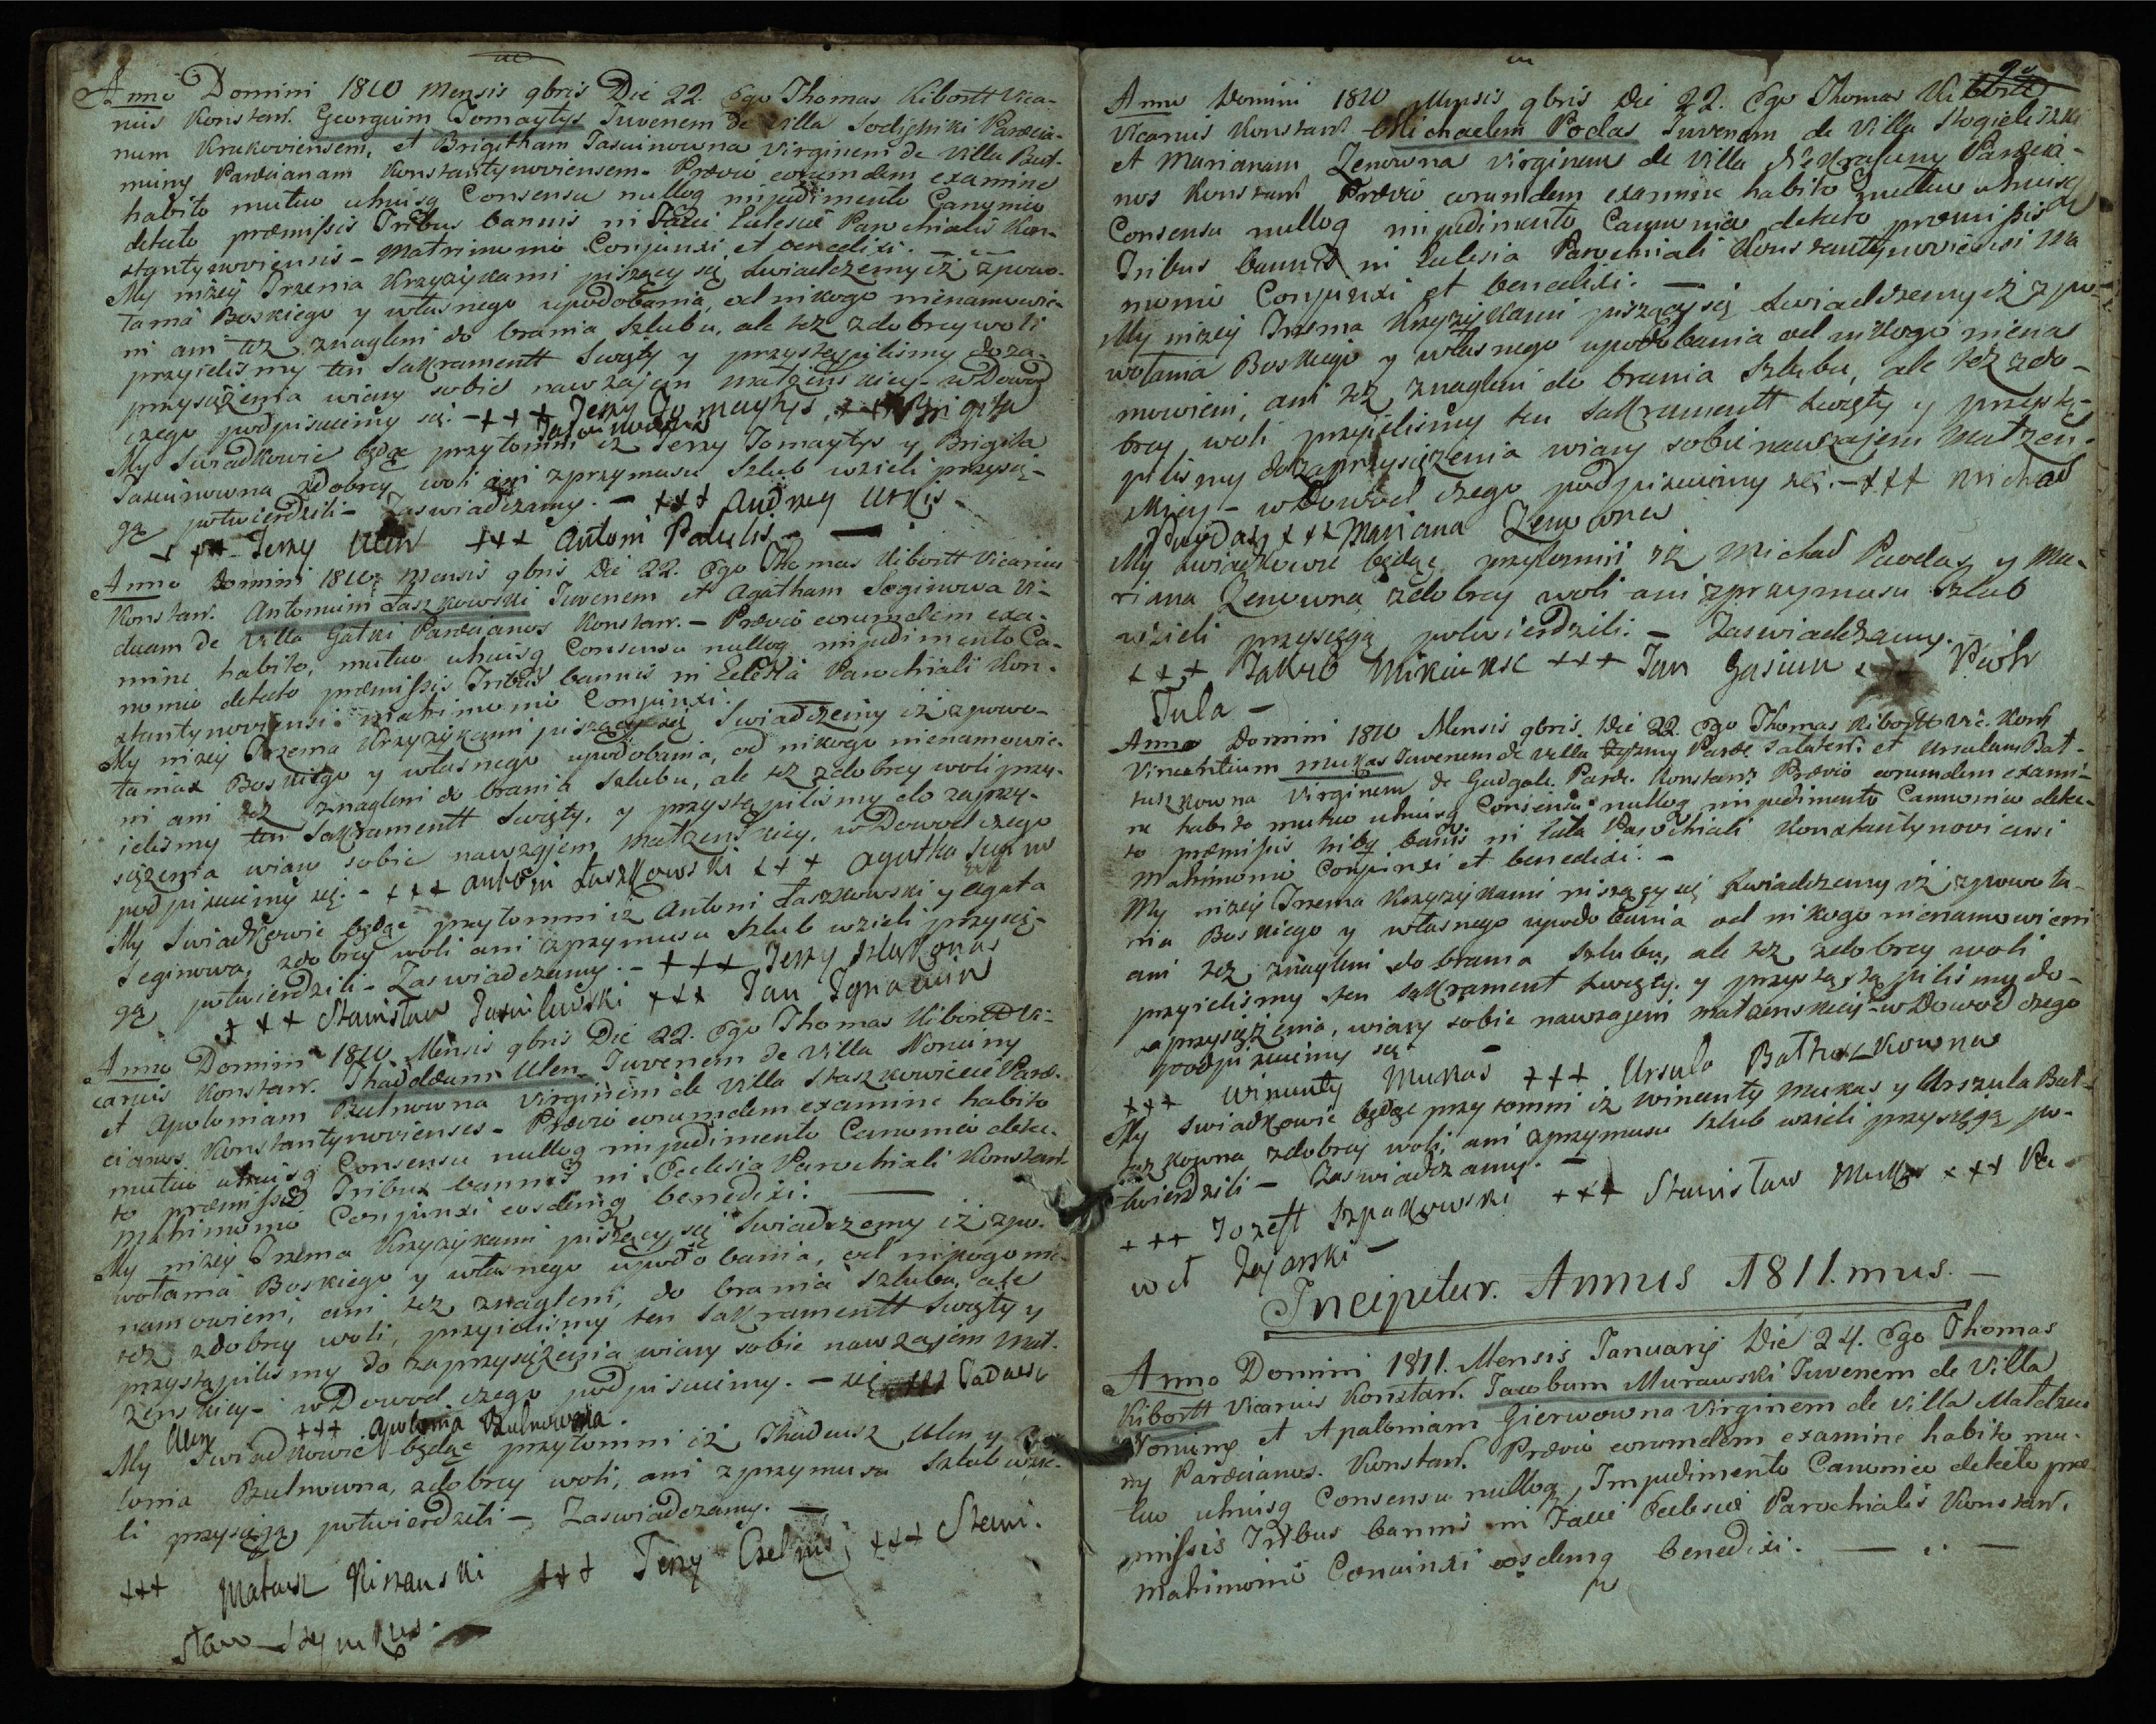 Anno Domini 1810 Mensis 9bris Die 22. Ego Thomas Kibortt Vica-
rius Konstan. Georgium Tomaytys Juvenem de Villa Parecia-
num Krakoviensem, et Brigitham Jasiunowna Virginem de Villa But-
miny Pareianam Konstantynoviensem. Prævio eorumdem examine
habito mutuo utriusq Consensu nulloq impedimento Canonico
detecto præmissis Tribus bannis in Facie Eclesiæ Parochialis Kon-
stantynoviensis - Matrimonio Conjunxi et benedixi. -
My niżey Trzema Krzyżykami piszący się Swiadczemy iż zpowo-
łania Boskiego y własnego upodobania, od nikogo nienamowie-
ni ani też znagleni do brania Szlubu, ale też zdobrey woli
przyieliśmy ten Sakramentt Swięty y przystąpiliśmy do za-
przysiężenia wiary sobie nawzajem małżenskiey - w Dowod
czego podpisuiemy się. - +++ Jerzy Tomaytys, +++ Brigita
Jasiunowna
My Swiadkowie będąc przytomni iż Jerzy Tomaytys y Brigita
Jasiunowna zdobrey woli ani zprzymusu Szlub wzieli przysię-
gą potwierdzili - Zaswiadczamy. - +++ Andrzey Urkis -
+++ Jerzy Ulen +++ Antoni Palulis -
Anno Domini 1810 Mensis 9bris Die 22. Ego Thomas Kibortt Vicarius
Konstan. Antonium Łaszkowski Juvenem et Agatham Seginowa Vi-
duam de Villa Gatki Pareianos Konstan. - Prævio eorumdem exa-
mine habito, mutuo utriusq Consensu nulloq impedimento Ca-
nonico detecto præmissis Tribus bannis in Eclesia Parochiali Kon-
stantynoviensi matrimonio Conjunxi.
My niżey Trzema Krzyżykami piszący się Swiadczemy iż zpowo-
łania Boskiego y własnego upodobania, od nikogo nienamowie-
ni ani też znagleni do brania Szlubu, ale też zdobrey woli przy-
ieliśmy ten Sakramentt Swięty, y przystąpiliśmy do zaprzy-
siężenia wiary sobie nawzajem Małżenskiey, w Dowod czego
podpisuiemy się. - +++ Antoni Łaszkowski +++ Agatha Segino
wa
My Swiadkowie będąc przytomni iż Antoni Łaszkowski y Agata
Seginowa, zdobrey woli ani zprzymusu Szlub wzieli przysię-
gą potwierdzili - Zaswiadczamy. - +++ Jerzy
+++ Stanisław +++ Jan
Anno Domini 1810 Mensis 9bris Die 22. Ego Thomas Kibortt Vi-
carius Konstan. Thaddæum Ulen Juvenem de Villa Noniuny
et Apoloniam Butnowna Virginem de Villa Staszkowicie Pare-
cianos Konstantynovienses - Prævio eorumdem examine habito
mutuo utriusq Consensu nulloq impedimento Canonico detec-
to præmissis Tribus bannis in Eclesia Parochiali Konstan.
Matrimonio Conjunxi eosdemq benedixi. -
My niżey Trzema Krzyżykami piszący się Swiadczemy iż zpo-
wołania Boskiego y własnego upodobania, od nikogo nie-
namowieni, ani też znagleni, do brania Szlubu, ale
też zdobrey woli, przyieliśmy ten Sakramentt Swięty y
przystąpiliśmy do zaprzysiężenia wiary sobie nawzajem Mał-
żenskiey - w Dowod czego podpisuiemy. - się +++ Tadeusz
Ulen +++ Apolonia Butnowna.
My Swiadkowie będąc przytomni iż Thadeusz Ulen y Apo-
lonia Butnowna, zdobrey woli, ani zprzymusu Szlub wzie-
li przysięgą potwierdzili - Zaswiadczamy. -
+++ Mateusz +++ Jerzy +++ Stani-
sław Szymkus.
Anno Domini 1810 Mensis 9bris Die 22. Ego Thomas Kibortt
Vicarius Konstant. Michaelem Podas Juvenem de Villa
et Marianam Zenowna Virginem de Villa Parecia-
nos Konstan. Prævio eorumdem examine habito mutuo utriusq
Consensu nulloq impedimento Canonico detecto præmissis
Tribus bannis in Eclesia Parochiali Konstantynoviensi Ma
monio Conjunxi et benedixi. -
My niżey Trzema Krzyżykami piszący się Swiadczemy iż zpo-
wołania Boskiego y własnego upodobania od nikogo niena
mowieni, ani też znagleni do brania Szlubu, ale też zdo-
brey woli przyieliśmy ten Sakramentt Swięty y przystą-
piliśmy do zaprzysiężenia wiary sobie nawzajem Małżen-
skiey - w Dowod czego podpisuiemy się. - +++ Michał
Puodas, +++ Mariana Zenowna
My Swiadkowie będąc przytomni iż Michał Puodas, y Ma-
riana Zenowna zdobrey woli ani zprzymusu Szlub
wzieli przysięgą potwierdzili. - Zaswiadczamy.
+++ Jakub +++ Jan Gasiun +++ Piotr
Tula -
Anno Domini 1810 Mensis 9bris. Die 22. Ego Thomas Kibortt Vic. Konst
Vincentium Mukas Juvenem de Villa Pare. et Ursulam Bat-
tuszkowna Virginem de Gudgale Pare. Konstan. Prævio eorumdem exami-
ne habito mutuo utriusq Consensu nulloq impedimento Canonico detec-
to præmissis tribq banis in Eccla Parochiali Konstantynoviensi
Matrimonio Conjunxi et benedixi. -
My niżey Trzema Krzyżykami piszący się Swiadczemy iż zpowoła-
nia Boskiego y własnego upodobania od nikogo nienamowieni
ani też znagleni do brania Szlubu, ale też zdobrey woli
przyieliśmy ten Sakrament Swięty. y przystąstąpiliśmy do-
zaprzysiężenia, wiary sobie nawzajem małżenskiey - w Dowod czego
podpisuiemy się -
+++ Wincenty Mukas +++ Ursula Battuszkowna
My Swiadkowie będąc przytomni iż Wincenty Mukas y Urszula Bat-
tuszkowna zdobrey woli, ani zprzymusu Szlub wzieli przysięgą po-
twierdzili - Zaswiadczamy. -
+++ Jozeff Szpakowski +++ Stanisław Mukas +++ Pa-
weł Zajarski -
Incipitur. Annus 1811.mus. -
Anno Domini 1811. Mensis Januarij Die 24. Ego Thomas
Kibortt Vicarius Konstan. Jacobum Murawski Juvenem de Villa
Noniuny et Apaloniam Gierwowna Virginem de Villa Matdziu
ny Parecianos. Konstan. Prævio eorumdem examine habito mu-
tuo utriusq Consensu nulloq, Impedimento Canonico detecto præ
missis Tribus bannis in Facie Eclesiæ Parochialis Konstan.
Matrimonio Coniunxi eosdemq benedixi. -